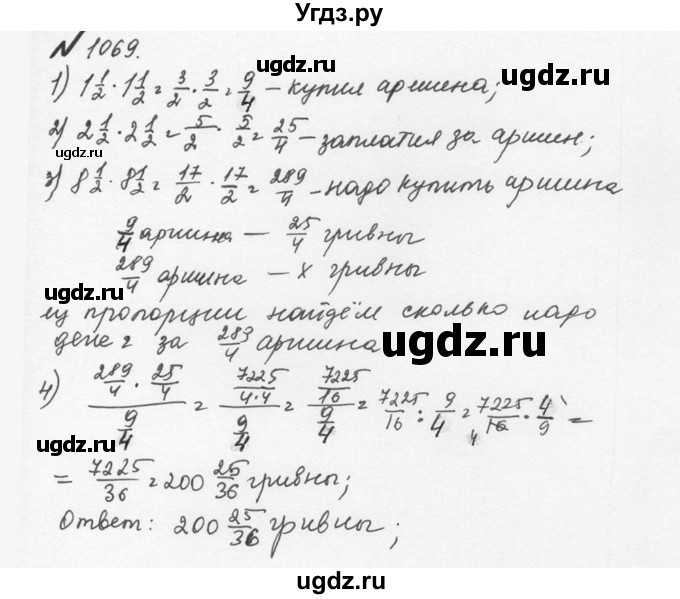 Угдз.ру
N 1069.
1) 1 1/2 · 1 1/2 = 3/2 · 3/2 = 9/4 – купил аршина;
2) 2 1/2 · 2 1/2 = 5/2 · 5/2 = 25/4 – заплатил за аршин;
ugdz.ru
3) 8 1/2 · 8 1/2 = 17/2 · 17/2 = 289/4 – надо купить аршина
9/4 аршина — 25/4 гривны
289/4 аршина — x гривны
ugdz.ru
из пропорции найдём сколько надо
денег за 289/4 аршина
ugdz.ru
ugdz.ru
4) (289/4 · 25/4)/(9/4) = (7225/(4·4))/(9/4) = (7225/16)/(9/4) = 7225/16 : 9/4 = 7225/16 · 4/9 =
4
= 7225/36 = 200 25/36 гривны;
Ответ: 200 25/36 гривны;
ugdz.ru
ugdz.ru
ugdz.ru